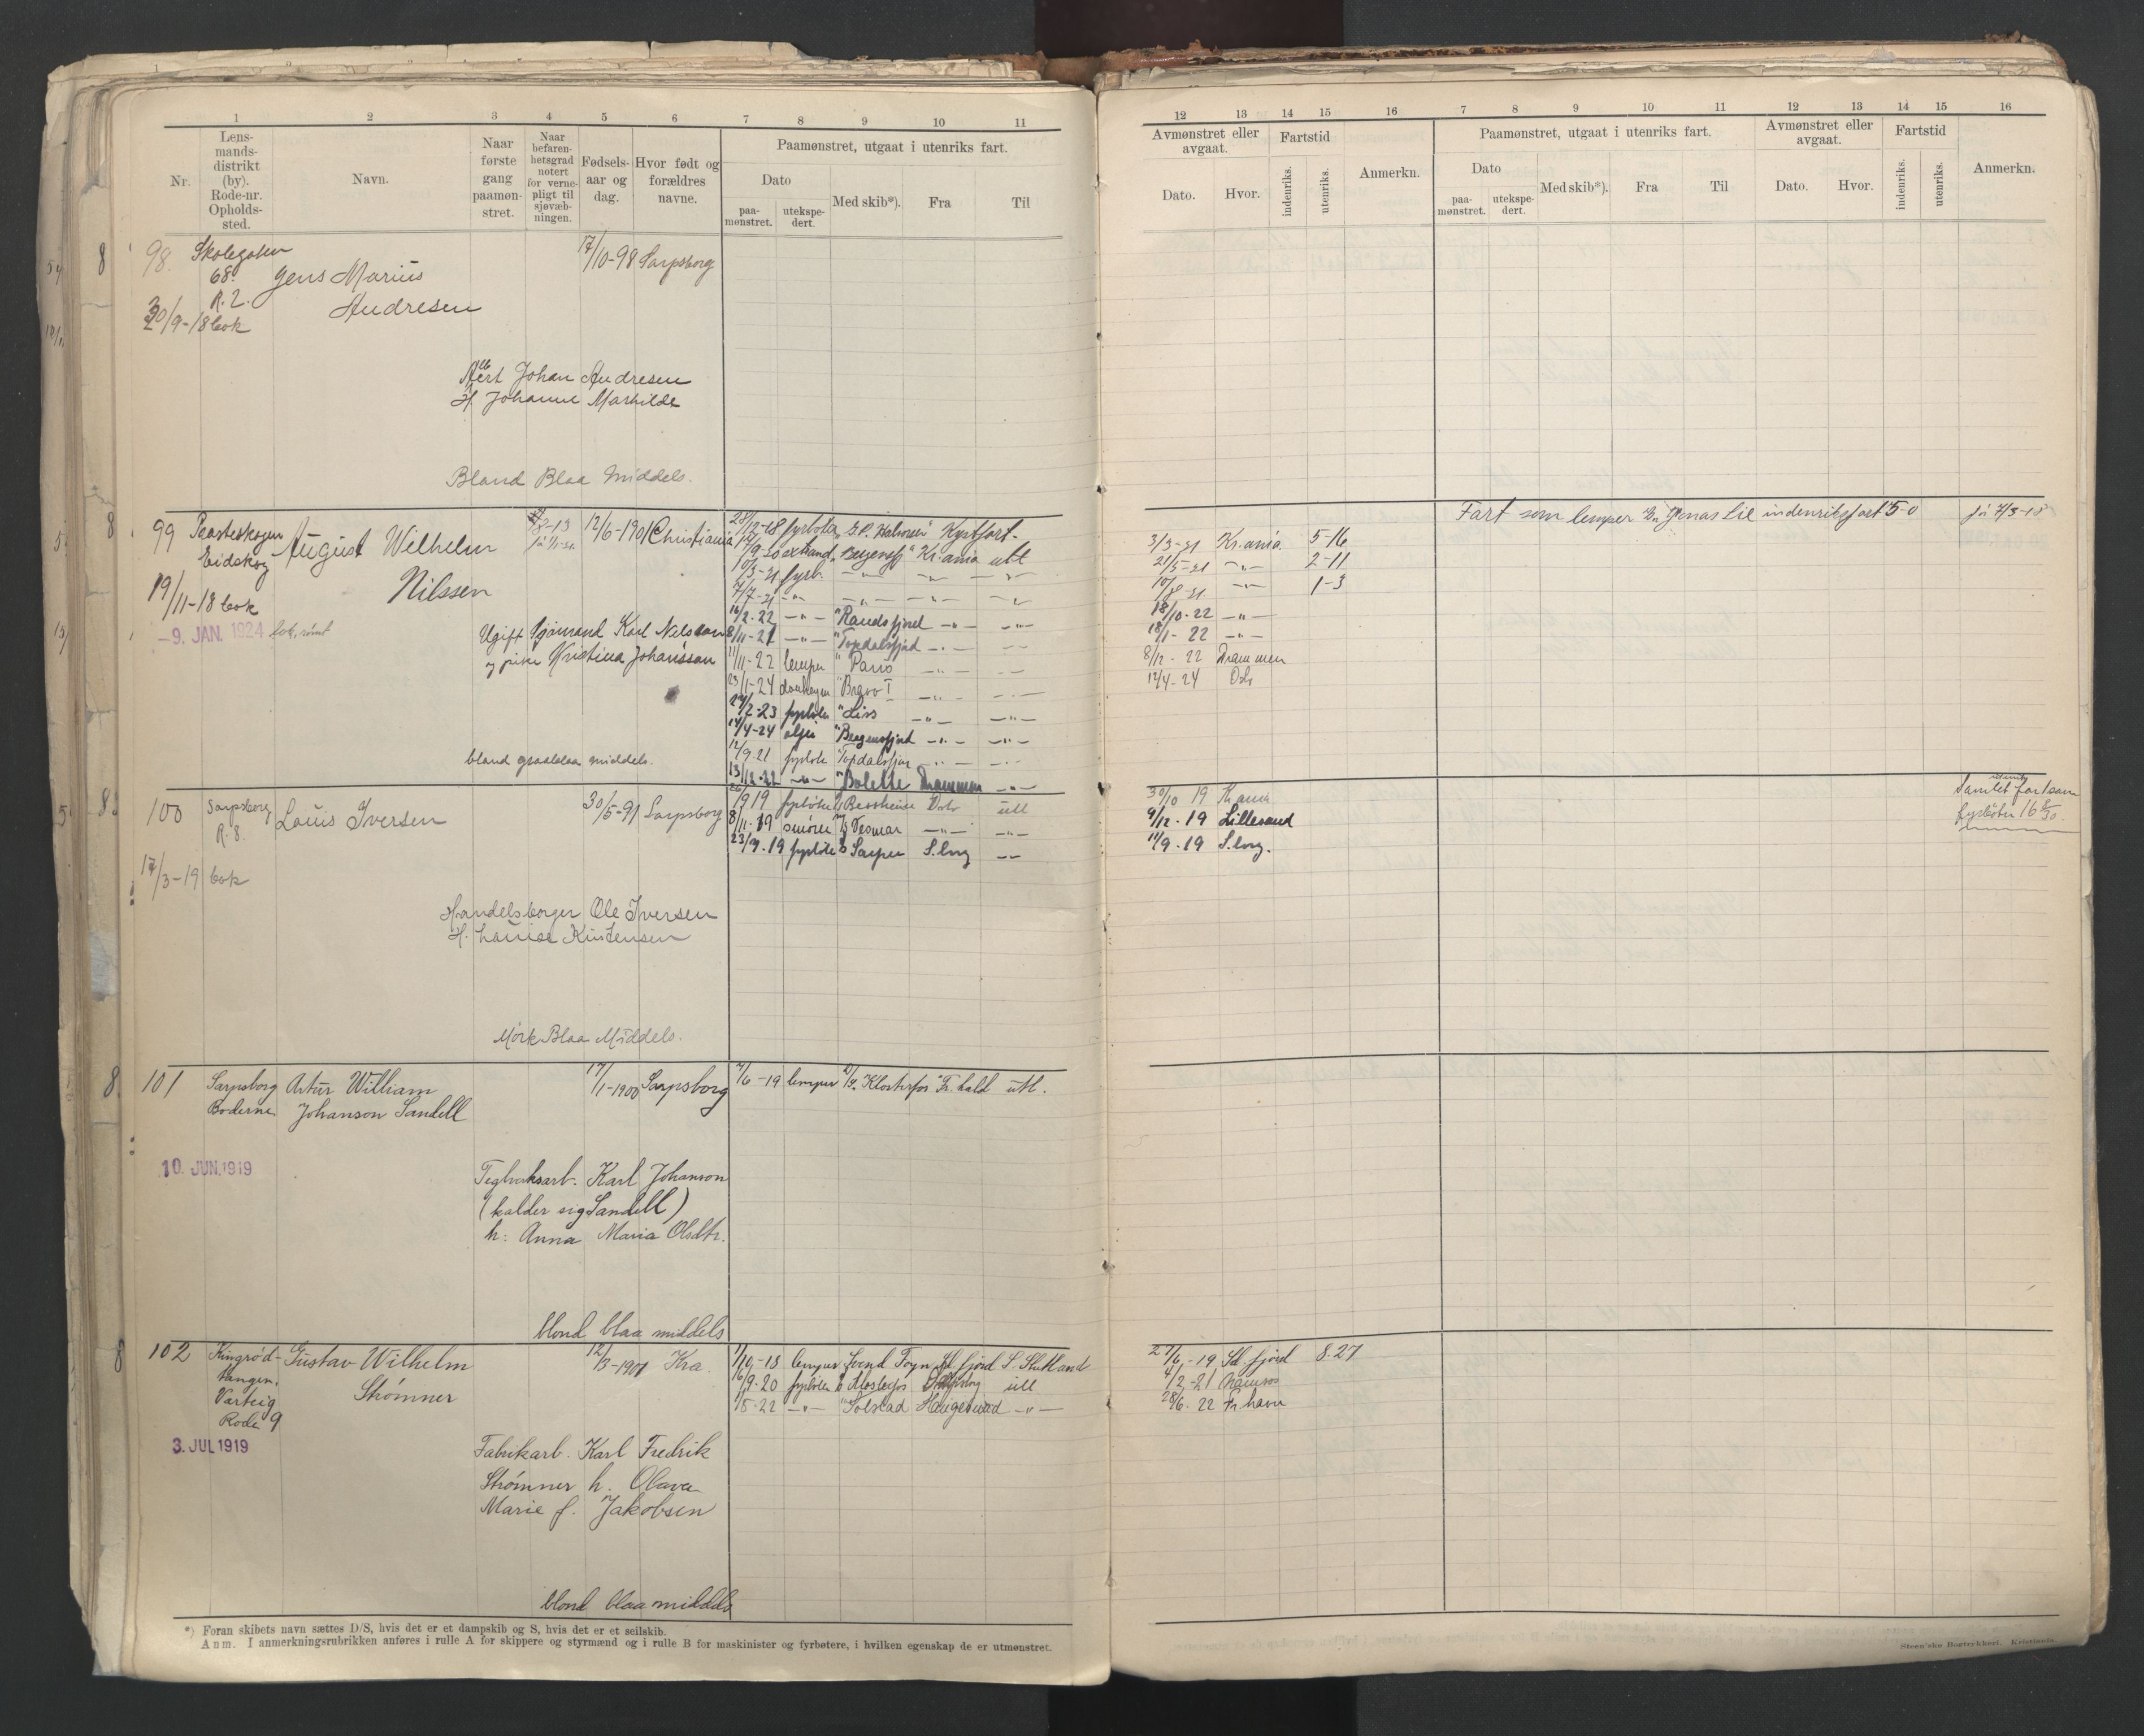 1 2 3 4 5 6 7 8 9 10 11
Nr.
Lens-
mands-
distrikt
(by).
Rode-nr.
Opholds-
sted.
Navn.
Naar
første
gang
paamøn-
stret.
Naar
befaren-
hetsgrad
notert
for verne-
pligt til
sjøvæb-
ningen.
Fødsels-
aar og
dag.
Hvor født og
forældres
navne.
Paamønstret, utgaat i utenriks fart.
Dato
paa-
mønstret.
utekspe-
dert.
Med skib*).
Fra
Til
98. Skolegaten
68.
R. 2.
Jens Marius
Andresen
17/10-98 Sarpsborg
30/9-18 bok
Johan Andresen
H. Johanne Mathilde
Bland Blaa Middels.
99
Eidskog
August Wilhelm
Nilssen
12/6-1901 Christiania
19/11-18 bok
-9. JAN. 1924
Ugift Sjømand Karl Nelsson
og pike Kristina Johansson
bland graablaa middels.
28/12-18 fyrbøter Kystfart.
Bergensfj Kr.ania utl
7/7-21 -"- -"- -"- -"-
16/2-22 -"- "Randsfjord -"- -"-
8/11-21 -"- "Topdalsfjord -"- -"-
11/11-22 lemper " Paris -"- -"-
23/1-24 donkeym "Bravo I -"- -"-
fyrbøter "Liss -"- -"-
14/4-24 "Bergensfjord -"- -"-
12/9 21 fyrbøte "Topdalsfjor -"- -"-
13/12-22 -"- "Bolette Drammen -"-
100 Sarpsborg
R. 8.
Louis Iversen
30/5-91 Sarpsborg
17/3-19 bok
Handelsborger Ole Iversen
H. Louise Kristensen
Mörk Blaa Middels.
19 fyrbøter Bessheim Oslo utl
8/11-19 smører Vesmar -"- -"-
fyrbøte Sarpen S.borg -"-
101 Sarpsborg
Boderne
Artur William
Johanson Sandell
17/1-1900 Sarpsborg
7/6-19 lemper Klosterfos Fr.hald utl.
10. JUN. 1919
Teglverksarb. Karl Johanson
(kalder sig Sandell)
h: Anna Maria Olsdtr.
blond blaa middels
102
tangen.
Varteig
Rode 9
Gustav Wilhelm
Strømner
12/3-1901 Kra.
3. JUL 1919
Fabrikarb. Karl Fredrik
Strømner h. Olava
Marie f. Jakobsen
blond blaa middels
1/10-18 lemper Svend Foyn Sd.fjord S. Shetland
16/9-20 fyrbøter Klosterfos Sarpsborg utl
1/5-22 -"- "Solstad Haugesund -"-
*) Foran skibets navn sættes D/S, hvis det er et dampskib og S, hvis det er et seilskib.
Anm. I anmerkningsrubrikken anføres i rulle A for skippere og styrmænd og i rulle B for maskinister og fyrbøtere, i hvilken egenskap de er utmønstret.
12 13 14 15 16 7 8 9 10 11 12 13 14 15 16
Avmønstret eller
avgaat.
Dato.
Hvor.
Fartstid
indenriks.
utenriks.
Anmerkn.
Paamønstret, utgaat i utenriks fart.
Dato
paa-
mønstret.
utekspe-
dert.
Med skib*).
Fra
Til
Avmønstret eller
avgaat.
Dato.
Hvor.
Fartstid
indenriks.
utenriks.
Anmerkn.
Fart som lemper "Jonas Lie indenriksfart 5-0
3/3-21 Kr.ania. 5-16
21/5-21 -"- 2-11
10/8-21 -"- 1-3
18/10-22 -"-
18/1-22 -"-
8/12-22 Drammen
12/4-24 Oslo
30/10 19 Kr.ania
9/12-19 Lillesand
14/9-19 S.borg.
Samlet fart som
fyrbøter 16
27/6-19 Sd.fjord 8-27
4/2-21 Namsos
28/6-22 Fr.havn
Steen'ske Bogtrykkeri. Kristiania.